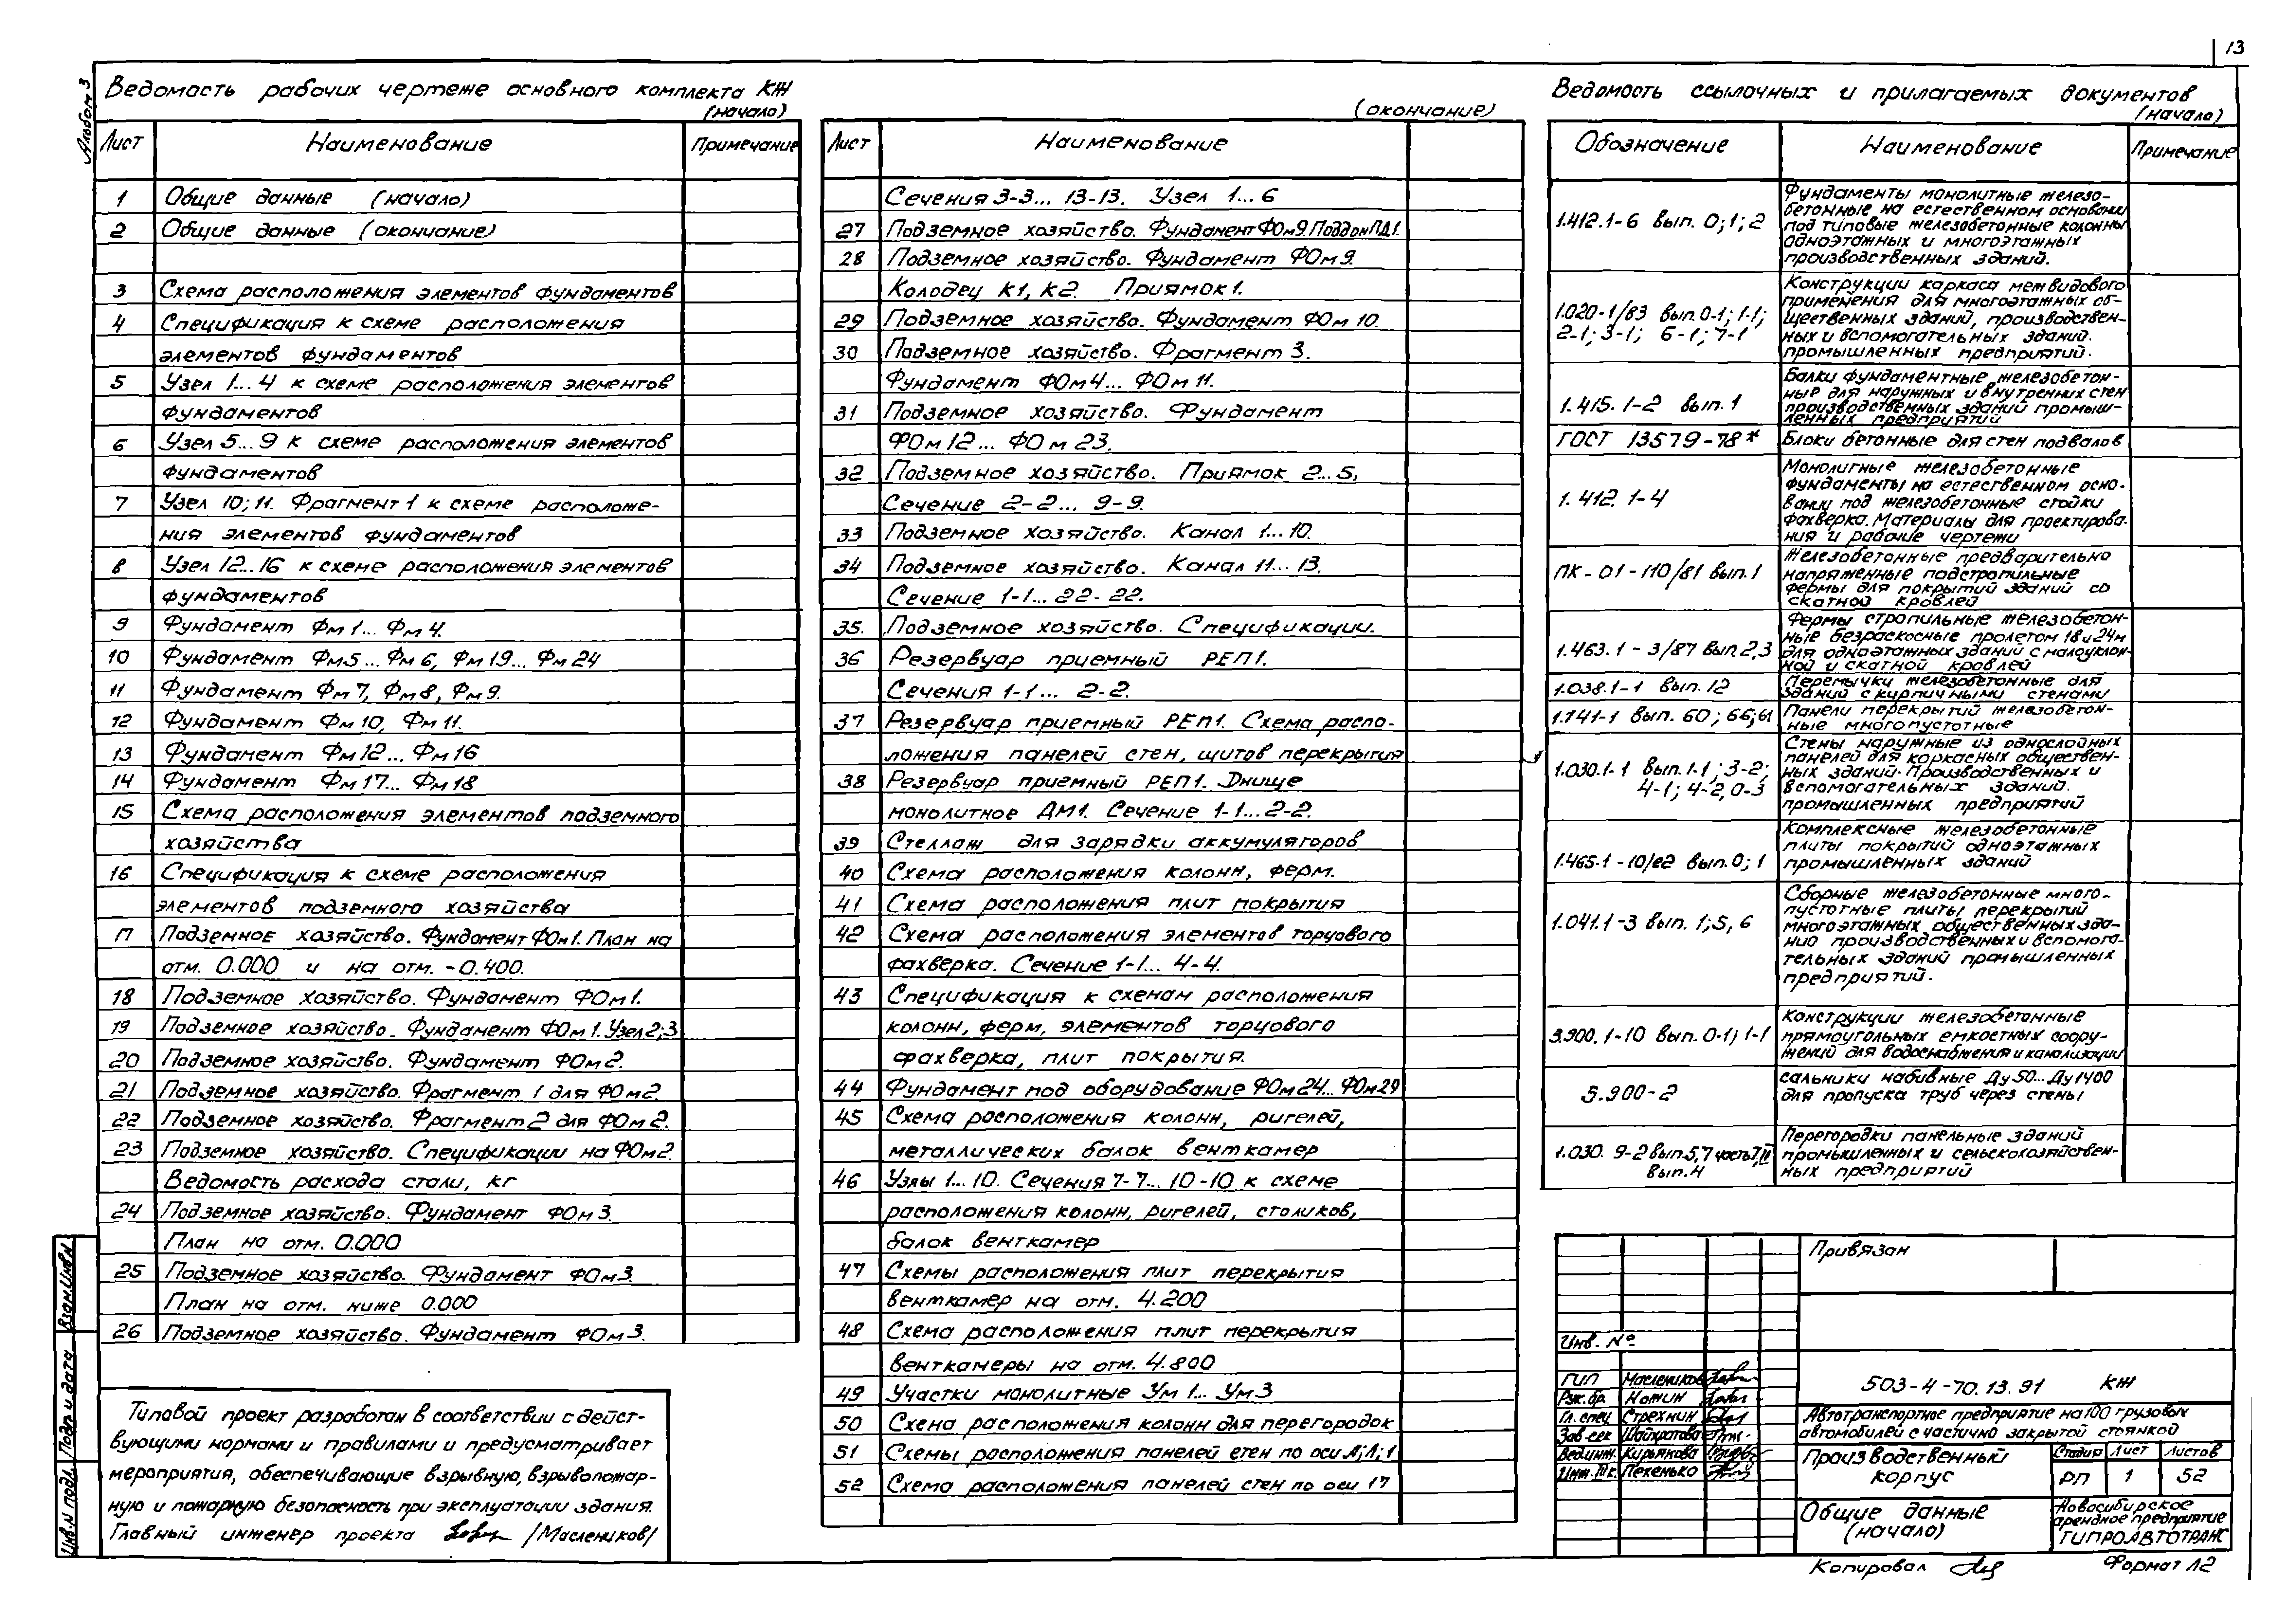 13
Альбом 3
Ведомость рабочих чертеже основного комплекта КЖ
(начало)
Лист Наименование Примечание
1 Общие данные (начало)
2 Общие данные (окончание)
3 Схема расположения элементов фундаментов
4 Спецификация к схеме расположения
элементов фундаментов
5 Узел 1...4 к схеме расположения элементов
фундаментов
6 Узел 5...9 к схеме расположения элементов
фундаментов
7 Узел 10; 11. Фрагмент 1 к схеме расположе-
ния элементов фундаментов
8 Узел 12...16 к схеме расположения элементов
фундаментов
9 Фундамент Фм 1... Фм 4.
10 Фундамент Фм5... Фм 6, Фм 19... Фм 24
11 Фундамент Фм 7, Фм 8, Фм 9.
12 Фундамент Фм 10, Фм 11.
13 Фундамент Фм 12... Фм 16
14 Фундамент Фм 17... Фм 18
15 Схема расположения элементов подземного
хозяйства
16 Спецификация к схеме расположения
элементов подземного хозяйства
17 Подземное хозяйство. Фундамент ФОм1. План на
отм. 0.000 и на отм. -0.400.
18 Подземное хозяйство. Фундамент ФОм 1.
19 Подземное хозяйство. Фундамент ФОм 1. Узел 2; 3
20 Подземное хозяйство. Фундамент ФОм 2.
21 Подземное хозяйство. Фрагмент 1 для ФОм2.
22 Подземное хозяйство. Фрагмент 2 для ФОм 2.
23 Подземное хозяйство. Спецификации на ФОм2.
Ведомость расхода стали, кг
24 Подземное хозяйство. Фундамент ФОм 3.
План на отм. 0.000
25 Подземное хозяйство. Фундамент ФОм3.
План на отм. ниже 0.000
26 Подземное хозяйство. Фундамент ФОм 3.
Типовой проект разработан в соответствии с дейст-
вующими нормами и правилами и предусматривает
мероприятия, обеспечивающие взрывную, взрывопожар-
ную и пожарную безопасность при эксплуатации здания.
Главный инженер проекта /Маслеников/
Взам.инв.N
Подп. и дата
Инв.N подл.
(окончание)
Лист Наименование
Сечения 3-3... 13-13. Узел 1...6
27 Подземное хозяйство. Фундамент ФОм9. Поддон ПД1.
28 Подземное хозяйство. Фундамент ФОм 9.
Колодец К1, К2. Приямок 1.
29 Подземное хозяйство. Фундамент ФОм 10.
30 Подземное хозяйство. Фрагмент 3.
Фундамент ФОм 4... ФОм 11.
31 Подземное хозяйство. Фундамент
ФОм 12... ФОм 23.
32 Подземное хозяйство. Приямок 2...5,
Сечение 2-2... 9-9.
33 Подземное хозяйство. Канал 1...10.
34 Подземное хозяйство. Канал 11...13.
Сечение 1-1... 22-22.
35. Подземное хозяйство. Спецификации.
36 Резервуар приемный РЕП1.
Сечения 1-1... 2-2.
37 Резервуар приемный РЕП1. Схема распо-
ложения панелей стен, щитов перекрытия
38 Резервуар приемный РЕП1. Днище
монолитное ДМ1. Сечение 1-1...2-2.
39 Стеллаж для зарядки аккумуляторов
40 Схема расположения колонн, ферм.
41 Схема расположения плит покрытия
42 Схема расположения элементов торцового
фахверка. Сечение 1-1... 4-4.
43 Спецификация к схемам расположения
колонн, ферм, элементов торцового
фахверка, плит покрытия.
44 Фундамент под оборудование ФОм 24... ФОм 29
45 Схема расположения колонн, ригелей,
металлических балок венткамер
46 Узлы 1...10. Сечения 7-7... 10-10 к схеме
расположения колонн, ригелей, столиков,
балок венткамер
47 Схемы расположения плит перекрытия
венткамер на отм. 4.200
48 Схема расположения плит перекрытия
венткамеры на отм. 4.800
49 Участки монолитные Ум 1... Ум 3
50 Схема расположения колонн для перегородок
51 Схемы расположения панелей стен по оси А; Л; 1
52 Схема расположения панелей стен по оси 17
Ведомость ссылочных и прилагаемых документов
(начало)
Обозначение Наименование Примечание
1.412.1-6 вып. 0; 1; 2 Фундаменты монолитные железо-
бетонные на естественном основании
под типовые железобетонные колонны
одноэтажных и многоэтажных
производственных зданий.
1.020-1/83 вып. 0-1; 1-1;
2-1; 3-1; 6-1; 7-1
Конструкции каркаса межвидового
применения для многоэтажных об-
щественных зданий, производствен-
ных и вспомогательных зданий.
промышленных предприятий.
1.415.1-2 вып. 1 Балки фундаментные железобетон-
ные для наружных и внутренних стен
производственных зданий промыш-
ленных предприятий
ГОСТ 13579-78* Блоки бетонные для стен подвалов
1.412.1-4 Монолитные железобетонные
фундаменты на естественном осно-
вании под железобетонные стойки
фахверка. Материалы для проектирова-
ния и рабочие чертежи
ПК-01-110/81 вып.1 Железобетонные предварительно
напряженные подстропильные
фермы для покрытий зданий со
скатной кровлей
1.463.1-3/87 вып. 2,3 Фермы стропильные железобетон-
ные безраскосные пролетом 18 и 24м
для одноэтажных зданий с малоуклон-
ной и скатной кровлей
1.038.1-1 вып. 12 Перемычки железобетонные для
зданий с кирпичными стенами
1.141-1 вып. 60; 66; 61 Панели перекрытий железобетон-
ные многопустотные
1.030.1-1 вып. 1-1; 3-2;
4-1; 4-2, 0-3
Стены наружные из однослойных
панелей для каркасных обществен-
ных зданий. Производственных и
вспомогательных зданий.
промышленных предприятий
1.465.1-10/82 вып. 0; 1 Комплексные железобетонные
плиты покрытий одноэтажных
промышленных зданий
1.041.1-3 вып. 1; 5, 6 Сборные железобетонные много-
пустотные плиты перекрытий
многоэтажных общественных зда-
ний производственных и вспомога-
тельных зданий промышленных
предприятий.
3.900.1-10 вып. 0-1; 1-1 Конструкции железобетонные
прямоугольных емкостных соору-
жений для водоснабжения и канализации
5.900-2 сальники набивные Ду 50... Ду 1400
для пропуска труб через стены
1.030.9-2 вып.5,7 часть I, II
вып. 4
Перегородки панельные зданий
промышленных и сельскохозяйствен-
ных предприятий
Привязан
Инв. №
ГИП Маслеников
Рук. бр. Нотин
Гл. спец Стрехнин
Зав. сек
Вед.инж. Кирьякова
Пехенько
503-4-70.13.91 КЖ
Автотранспортное предприятие на 100 грузовых
автомобилей с частично закрытой стоянкой
Производственный
корпус
Стадия Лист Листов
РП 1 52
Общие данные
(начало)
Новосибирское
арендное предприятие
ГИПРОАВТОТРАНС
Копировал
Формат А2